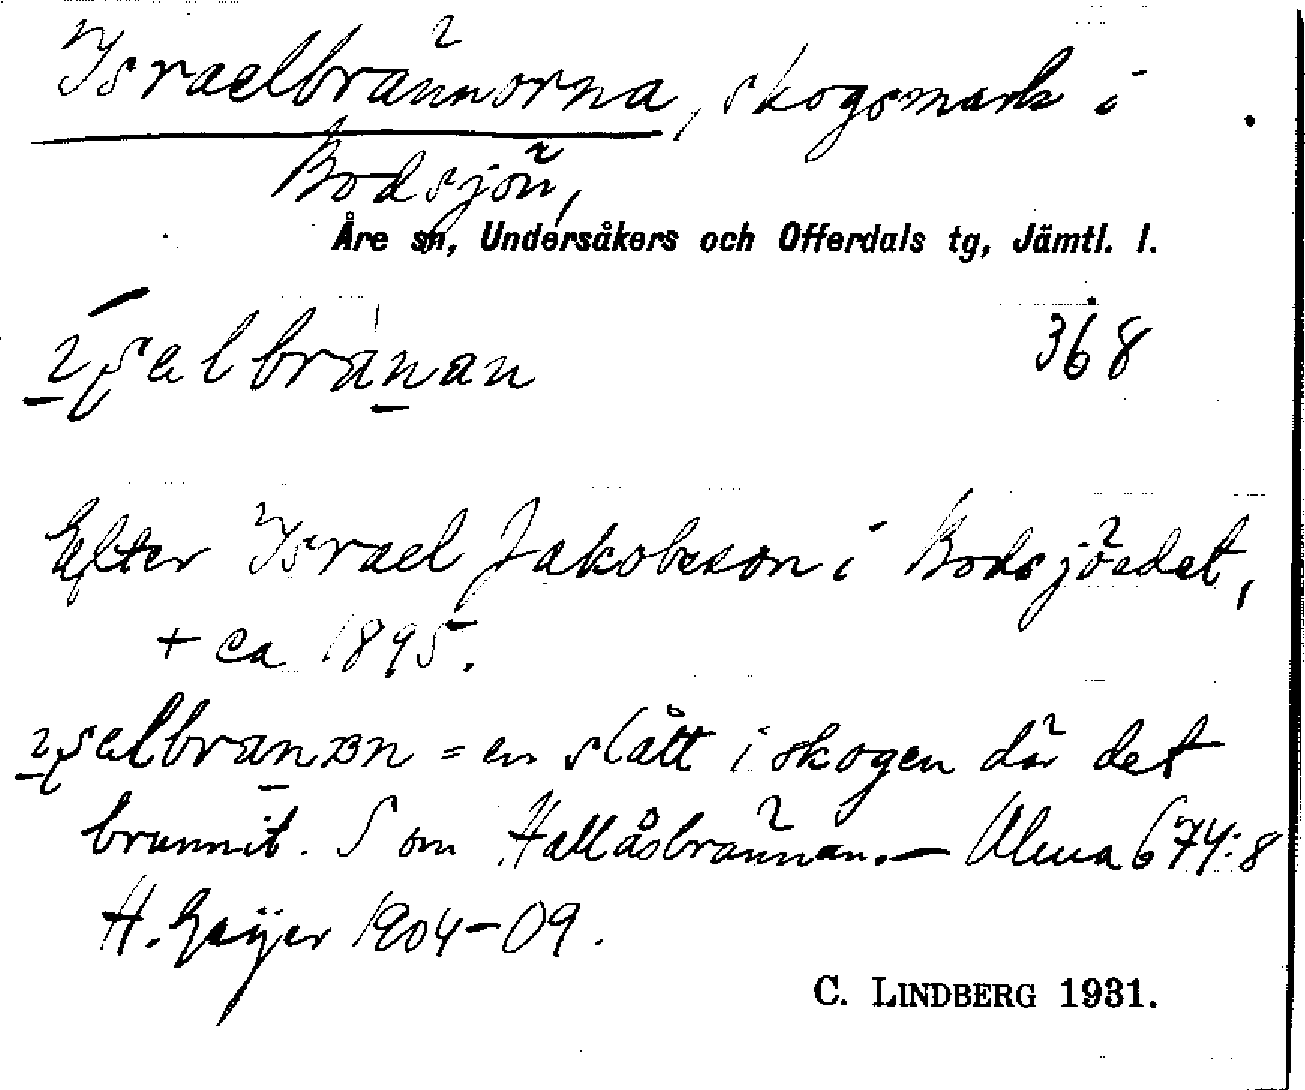 Israelbrännorna, skogsmark i
Bodsjön,
Åre sn, Undersåkers och Offerdals tg, Jämtl. l.
368
Efter Israel Jakobsson i Bodsjöedet,
+ ca 1895.
= en slått i skogen där det
brunnit. Som Hallåsbrännan. — Ulma 674:8
H. Geijer 1904-09.
C. LINDBERG 1931.